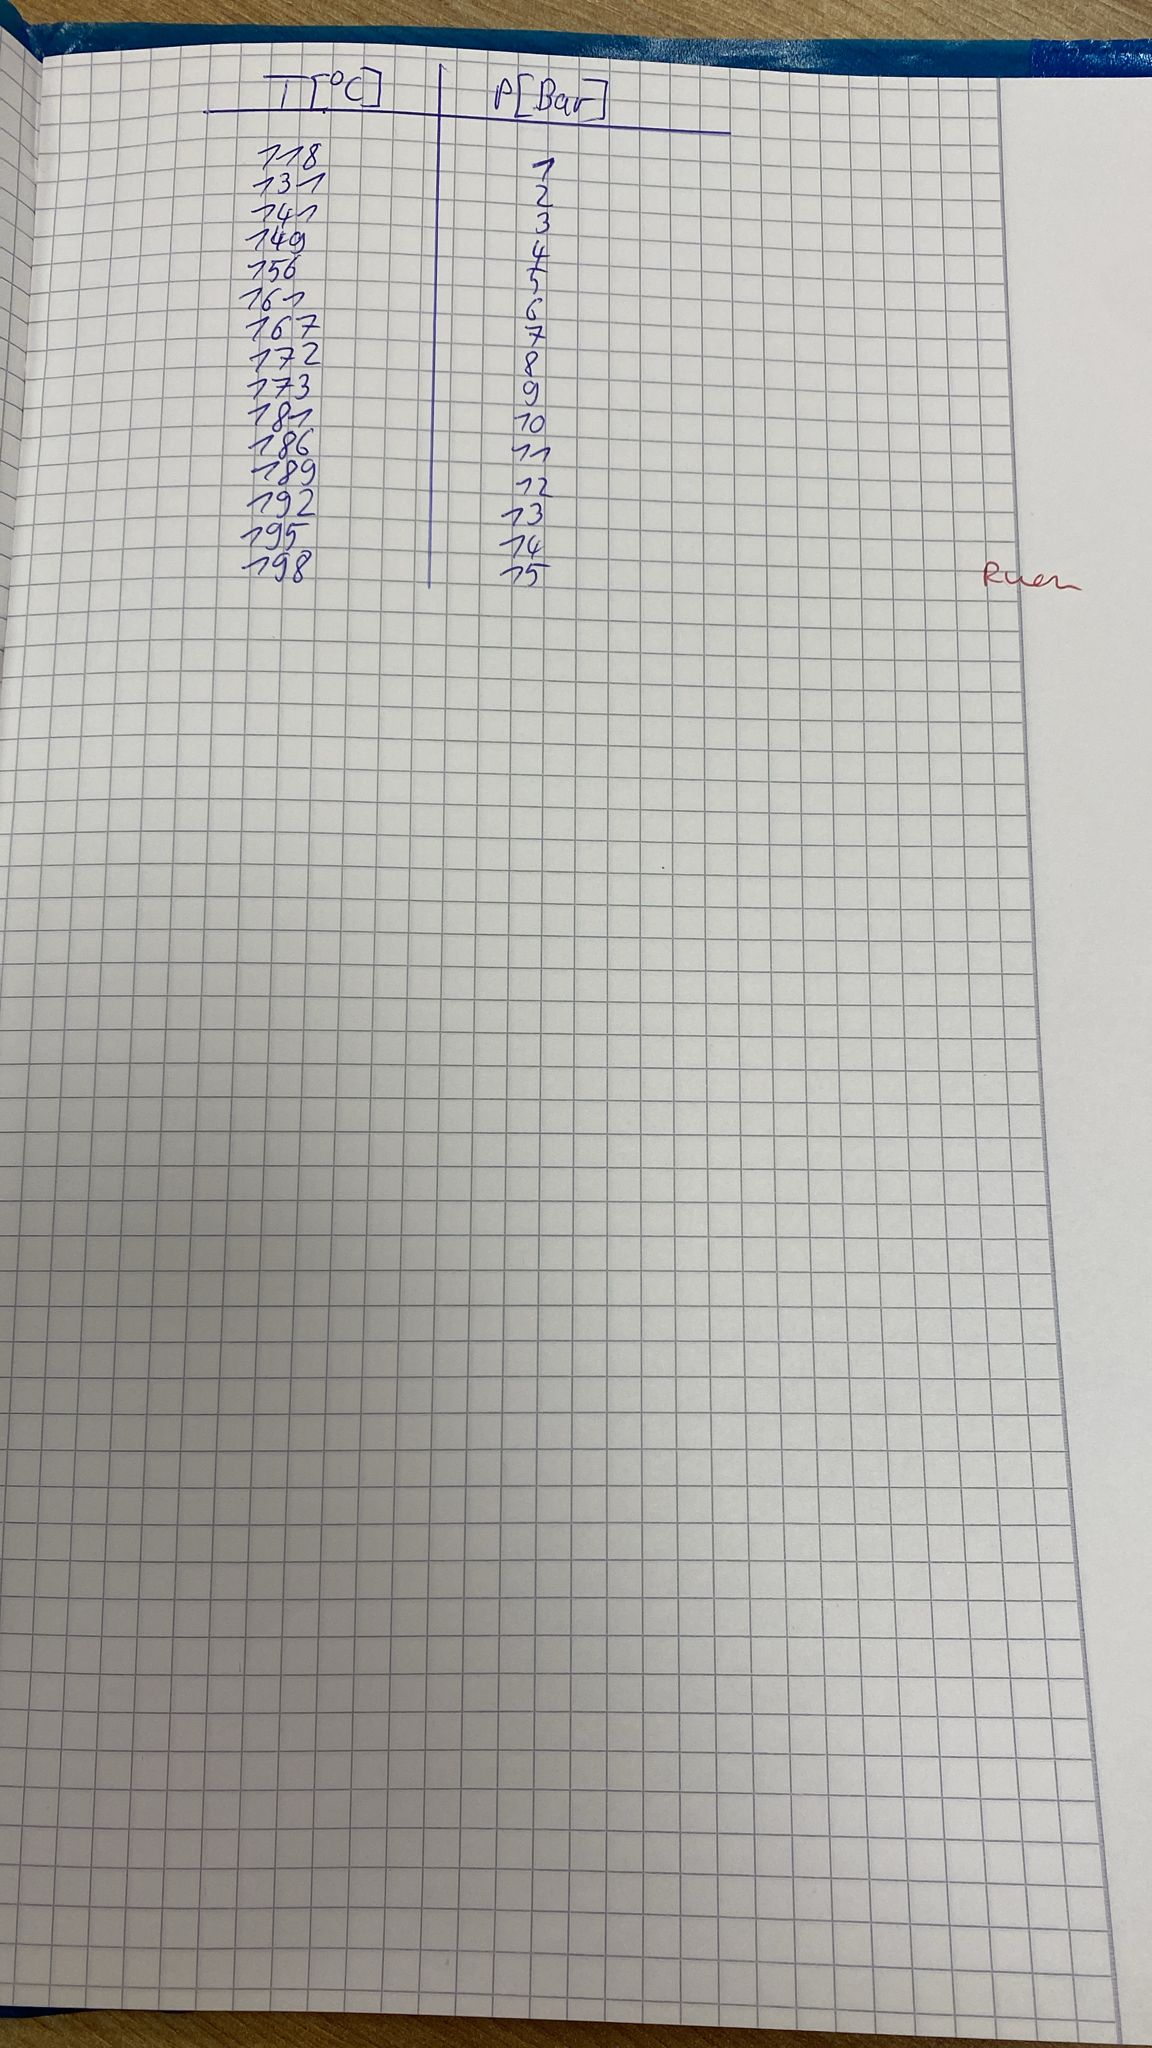 T[°C] P[Bar]
118 1
131 2
141 3
149 4
156 5
161 6
167 7
172 8
173 9
181 10
186 11
189 12
192 13
195 14
198 15